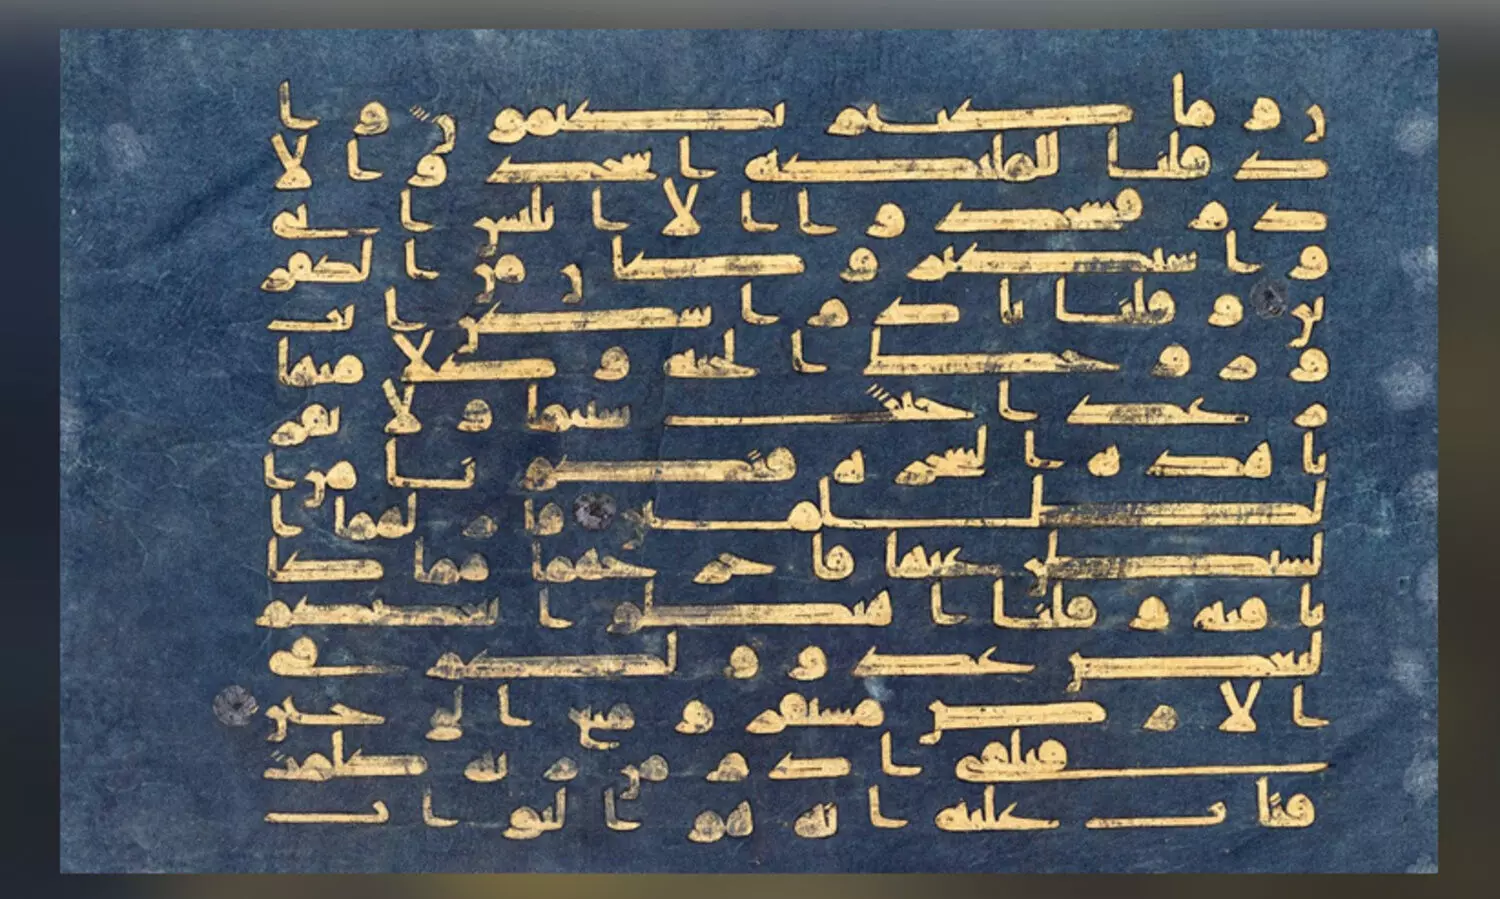 ن وما كنتم تكتمون وا
ذ قلنا للملئكة اسجدوا لا
دم فسجدوا الا ابليس ابى
واستكبر وكان من الكفر
ين وقلنا يادم اسكن انت
وزوجك الجنة وكلا منها
رغدا حيث شئتما ولا تقر
با هذه الشجرة فتكونا من ا
لظلمين فازلهما ا
لشيطن عنها فاخرجهما مما كا
نا فيه وقلنا اهبطوا بعضكم
لبعض عدو ولكم في
الارض مستقر ومتع الى حين
فتلقى ادم من ربه كلمت
فتاب عليه انه هو التواب